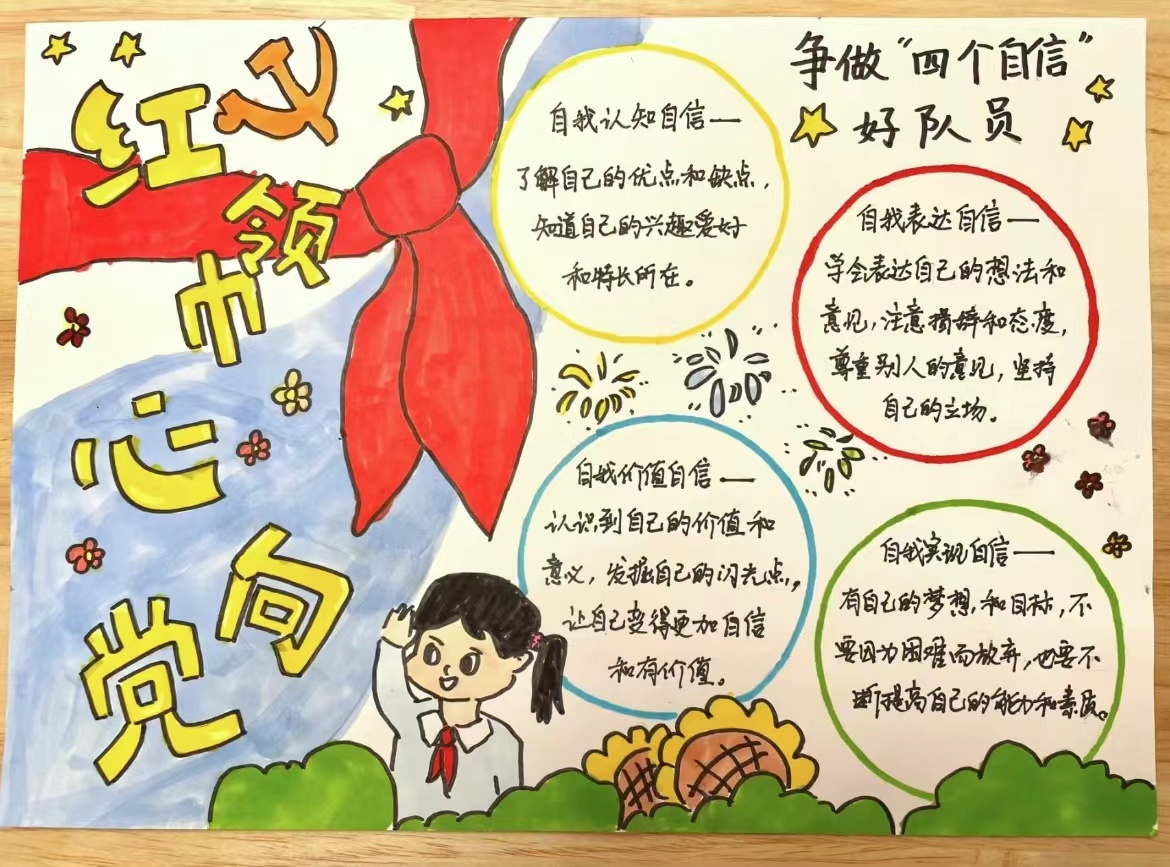 红领巾心向党
争做“四个自信”
好队员
自我认知自信—
了解自己的优点和缺点，
知道自己的兴趣爱好
和特长所在。
自我表达自信—
学会表达自己的想法和
意见，注意措辞和态度，
尊重别人的意见，坚持
自己的立场。
自我价值自信—
认识到自己的价值和
意义，发掘自己的闪光点，
让自己变得更加自信
和有价值。
自我实现自信—
有自己的梦想和目标，不
要因为困难而放弃，也要不
断提高自己的能力和素质。